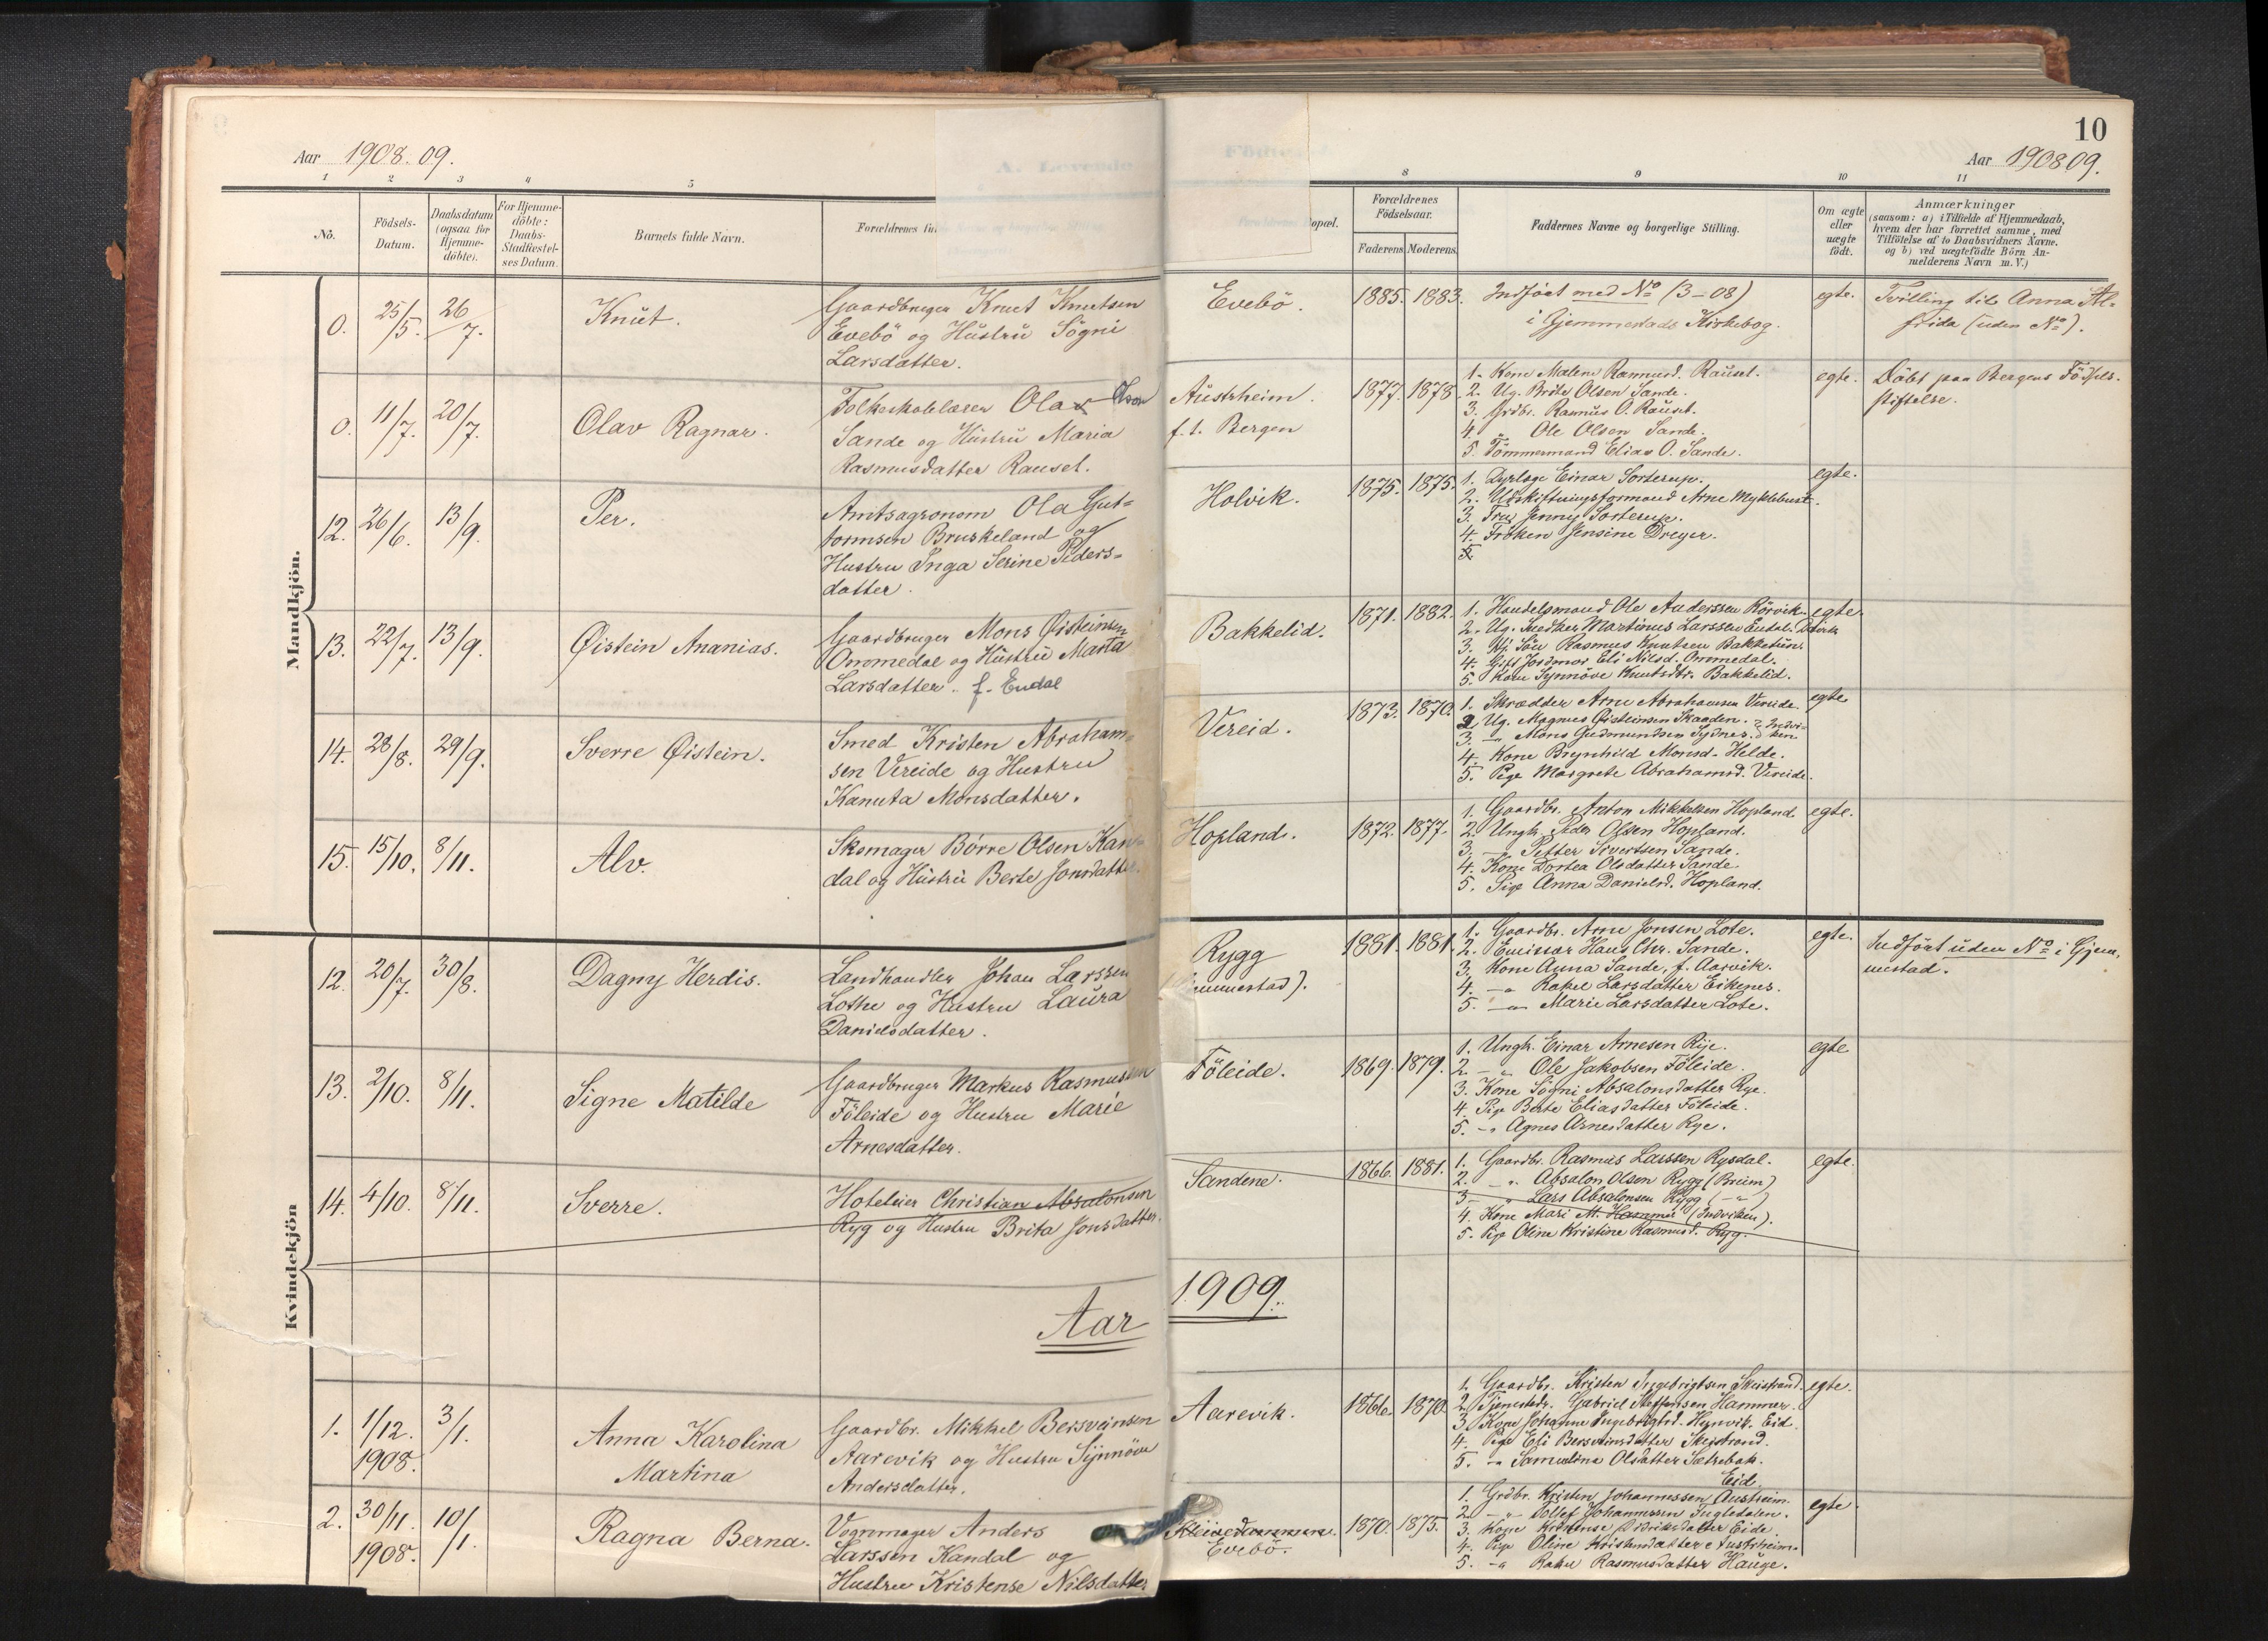 Aar 1908.09.
1 2 3 4 5
No.
Födsels-
Datum.
Daabsdatum
(ogsaa for
Hjemme-
döbte).
For Hjemme-
döbte:
Daabs-
Stadfæstel-
ses Datum.
Barnets fulde Navn.
Forældrenes ful
A. Levende
Mandkjön.
0. 25/5. 26/7. Knut.
Gaardbruger Knut Knutsen
Evebö og Hustru Sögni
Larsdatter.
0. 11/7. 20/7. Olav Ragnar.
Folkeskolelærer Olav
Sande og Hustru Maria
Rasmusdatter Rauset.
12. 26/6. 13/9. Per.
Amtsagronom Ola Gut-
tormsen Bruskeland og
Hustru Inga Serine Peders-
datter.
13. 22/7. 13/9. Øistein Ananias.
Gaardbruger Mons Øisteinsen
Ommedal og Hustru Marta
Larsdatter. f. Endal
14. 28/8. 29/9. Sverre Øistein.
Smed Kristen Abraham-
sen Vereide og Hustru
Kanuta Monsdatter.
15. 15/10. 8/11. Alv.
Skomager Børre Olsen Kan-
dal og Hustru Berte Jonsdatter.
Kvindekjön
12. 20/7. 30/8. Dagny Herdis.
Landhandler Johan Larssen
Lothe og Hustru Laura
Danielsdatter.
13. 2/10. 8/11. Signe Matilde
Gaardbruger Markus Rasmussen
Föleide og Hustru Marie
Arnesdatter.
14. 4/10. 8/11. Sverre.
Hoteleier Christian Absalonsen
Ryg og Hustru Brita Jonsdatter.
Aar
1. 1/12. 1908. 3/1. Anna Karolina
Martina
Gaardbr. Mikkel Bersveinsen
Aarevik og Hustru Synnöve
Andersdatter.
2. 30/11. 1908. 10/1. Ragna Berna.
Vognmager Anders
Larssen Kandal og
Hustru Kristense Nilsdatter
10
Aar 1908 09.
8 9 10 11
opæl.
Forældrenes
Födselsaar.
Faderens. Moderens.
Faddernes Navne og borgerlige Stilling.
Om ægte
eller
uægte
födt.
Anmærkninger
(saasom: a) i Tilfælde af Hjemmedaab,
hvem der har forrettet samme, med
Tilföielse af to Daabsvidners Navne.
og b) ved uægtefödte Börn An-
melderens Navn m.V.)
Evebö. 1885. 1883. Indfört med No (3-08)
i Gjemmestads Kirkebog.
egte. Tvilling til Anna Al-
frida (uden No).
Austrheim.
f.t. Bergen
1877. 1878.
1. Kone Malene Rasmusd. Rauset.
2. Ug. Bröte Olsen Sande.
3. Grdbr. Rasmus O. Rauset.
4. " Ole Olsen Sande.
5. Tömmermand Elias O. Sande.
egte. Döbt paa Bergens Födsels-
stiftelse.
Holvik. 1875. 1875.
1. Dyrlæge Einar Sorterup.
2. Udskiftningsformand Arne Myklebust.
3. Fru Jenny Sorterup.
4. Fröken Jensine Dreyer.
5.
egte.
Bakkelid. 1871. 1882.
1. Handelsmand Ole Anderssen Rörvik.
2. Ug. Snedker Martinus Larssen Endal.
3. Gj. Sön Rasmus Knutsen Bakketun.
4. Gift Jordmor Eli Nilsd. Ommedal.
5. Kone Synnöve Knutsdtr. Bakkelid.
egte.
Vereid. 1873. 1870.
1. Skrædder Arne Abrahamsen Vereide.
2. Ug. Magnus Øisteinsen Skaaden.
3. -"- Mons Gudmundsen Sydnes.
4. Kone Brynhild Monsd. Helde.
5. Pige Margrete Abrahamsd. Vereide.
egte
Hopland. 1872. 1877.
1. Gaardbr. Anton Mikkelsen Hopland.
2. Ungk. Peder Olsen Hopland.
3. -"- Petter Sivertsen Sande.
4. Kone Dortea Olsdatter Sande.
5. Pige Anna Danielsd. Hopland.
egte.
Rygg
(Gjemmestad).
1881. 1881.
1. Gaardbr. Arne Jonsen Lote.
2. Emissær Hans Chr. Sande.
3. Kone Anna Sande, f. Aarvik.
4. -"- Rakel Larsdatter Eikenes.
5. -"- Marie Larsdatter Lote.
egte. Indfört uden No i Gjem-
mestad.
Föleide. 1869. 1879.
1. Ungk. Einar Arnesen Rye.
2. -"- Ole Jakobsen Föleide.
3. Kone Sögni Absalonsdatter Rye.
4. Pige Berte Eliasdatter Föleide.
5. -"- Agnes Arnesdatter Rye.
egte
Sandene. 1866. 1881.
1. Gaardbr. Rasmus Larssen Rysdal.
2. -"- Absalon Olsen Rygg (Breim)
3. -"- Lars Absalonsen Rygg (-"-)
4. Kone Mari M. Hammer (Indviken).
5. Pige Oline Kristine Rasmusd. Rygg.
egte.
1909.
Aarevik. 1866. 1870.
1. Gaardbr. Kristen Ingebrigtsen Skeistrand.
2. Tjenestedr. Gabriel Steffensen Hammer.
3. Kone Johanne Ingebrigtsd. Hennvik. Eid.
4. Pige Eli Bersveinsdatter Skeistrand.
5. -"- Samueline Olsdatter Sætrebak.
Eid.
egte.
Evebö. 1870. 1875.
1. Grdbr. Kristen Johannessen Austreim.
2. -"- Tollef Johannessen Fugledalen.
3. Kone Kristense Didriksdatter Eide.
4. Pige Oline Kristensdatter Austrheim.
5. -"- Rakel Rasmusdatter Hauge.
egte.